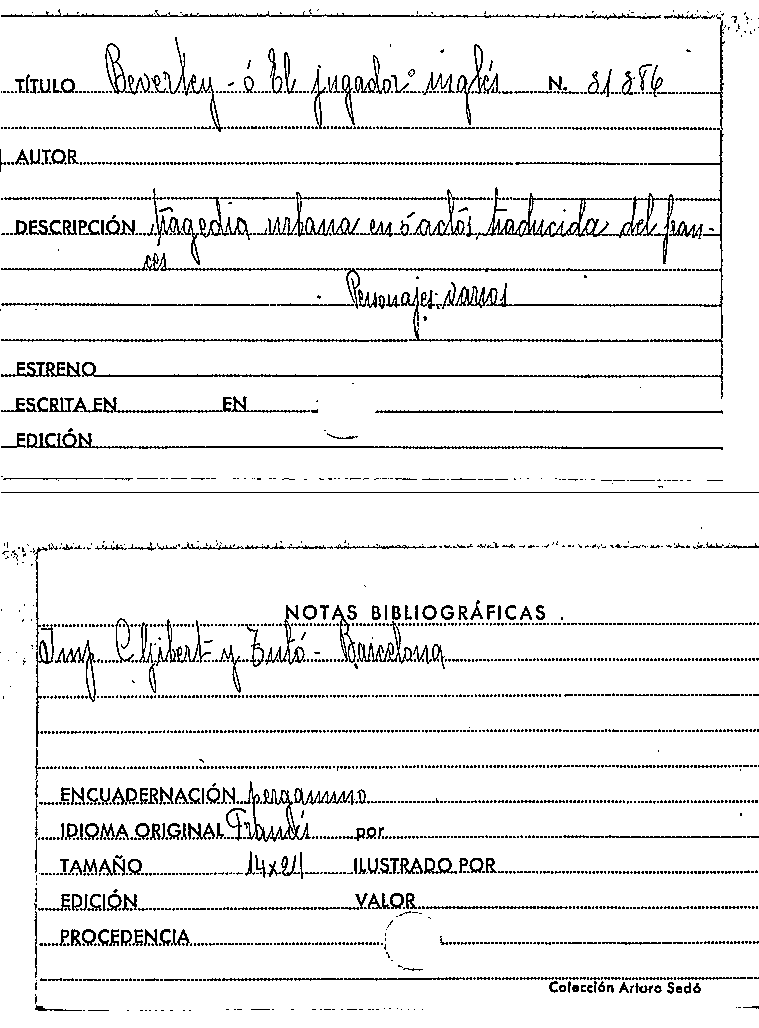 TÍTULO Beverley - ó El jugador inglés N. 31386
AUTOR
DESCRIPCIÓN tragedia urbana en 5 actos, traducida del fran-
ces
Personajes: varios
ESTRENO
ESCRITA EN EN
EDICIÓN
NOTAS BIBLIOGRÁFICAS
Imp C Gibert y Tutó - Barcelona
ENCUADERNACIÓN pergamino
IDIOMA ORIGINAL Francés por
TAMAÑO 14x21 ILUSTRADO POR
EDICIÓN VALOR
PROCEDENCIA
Colección Arturo Sedó